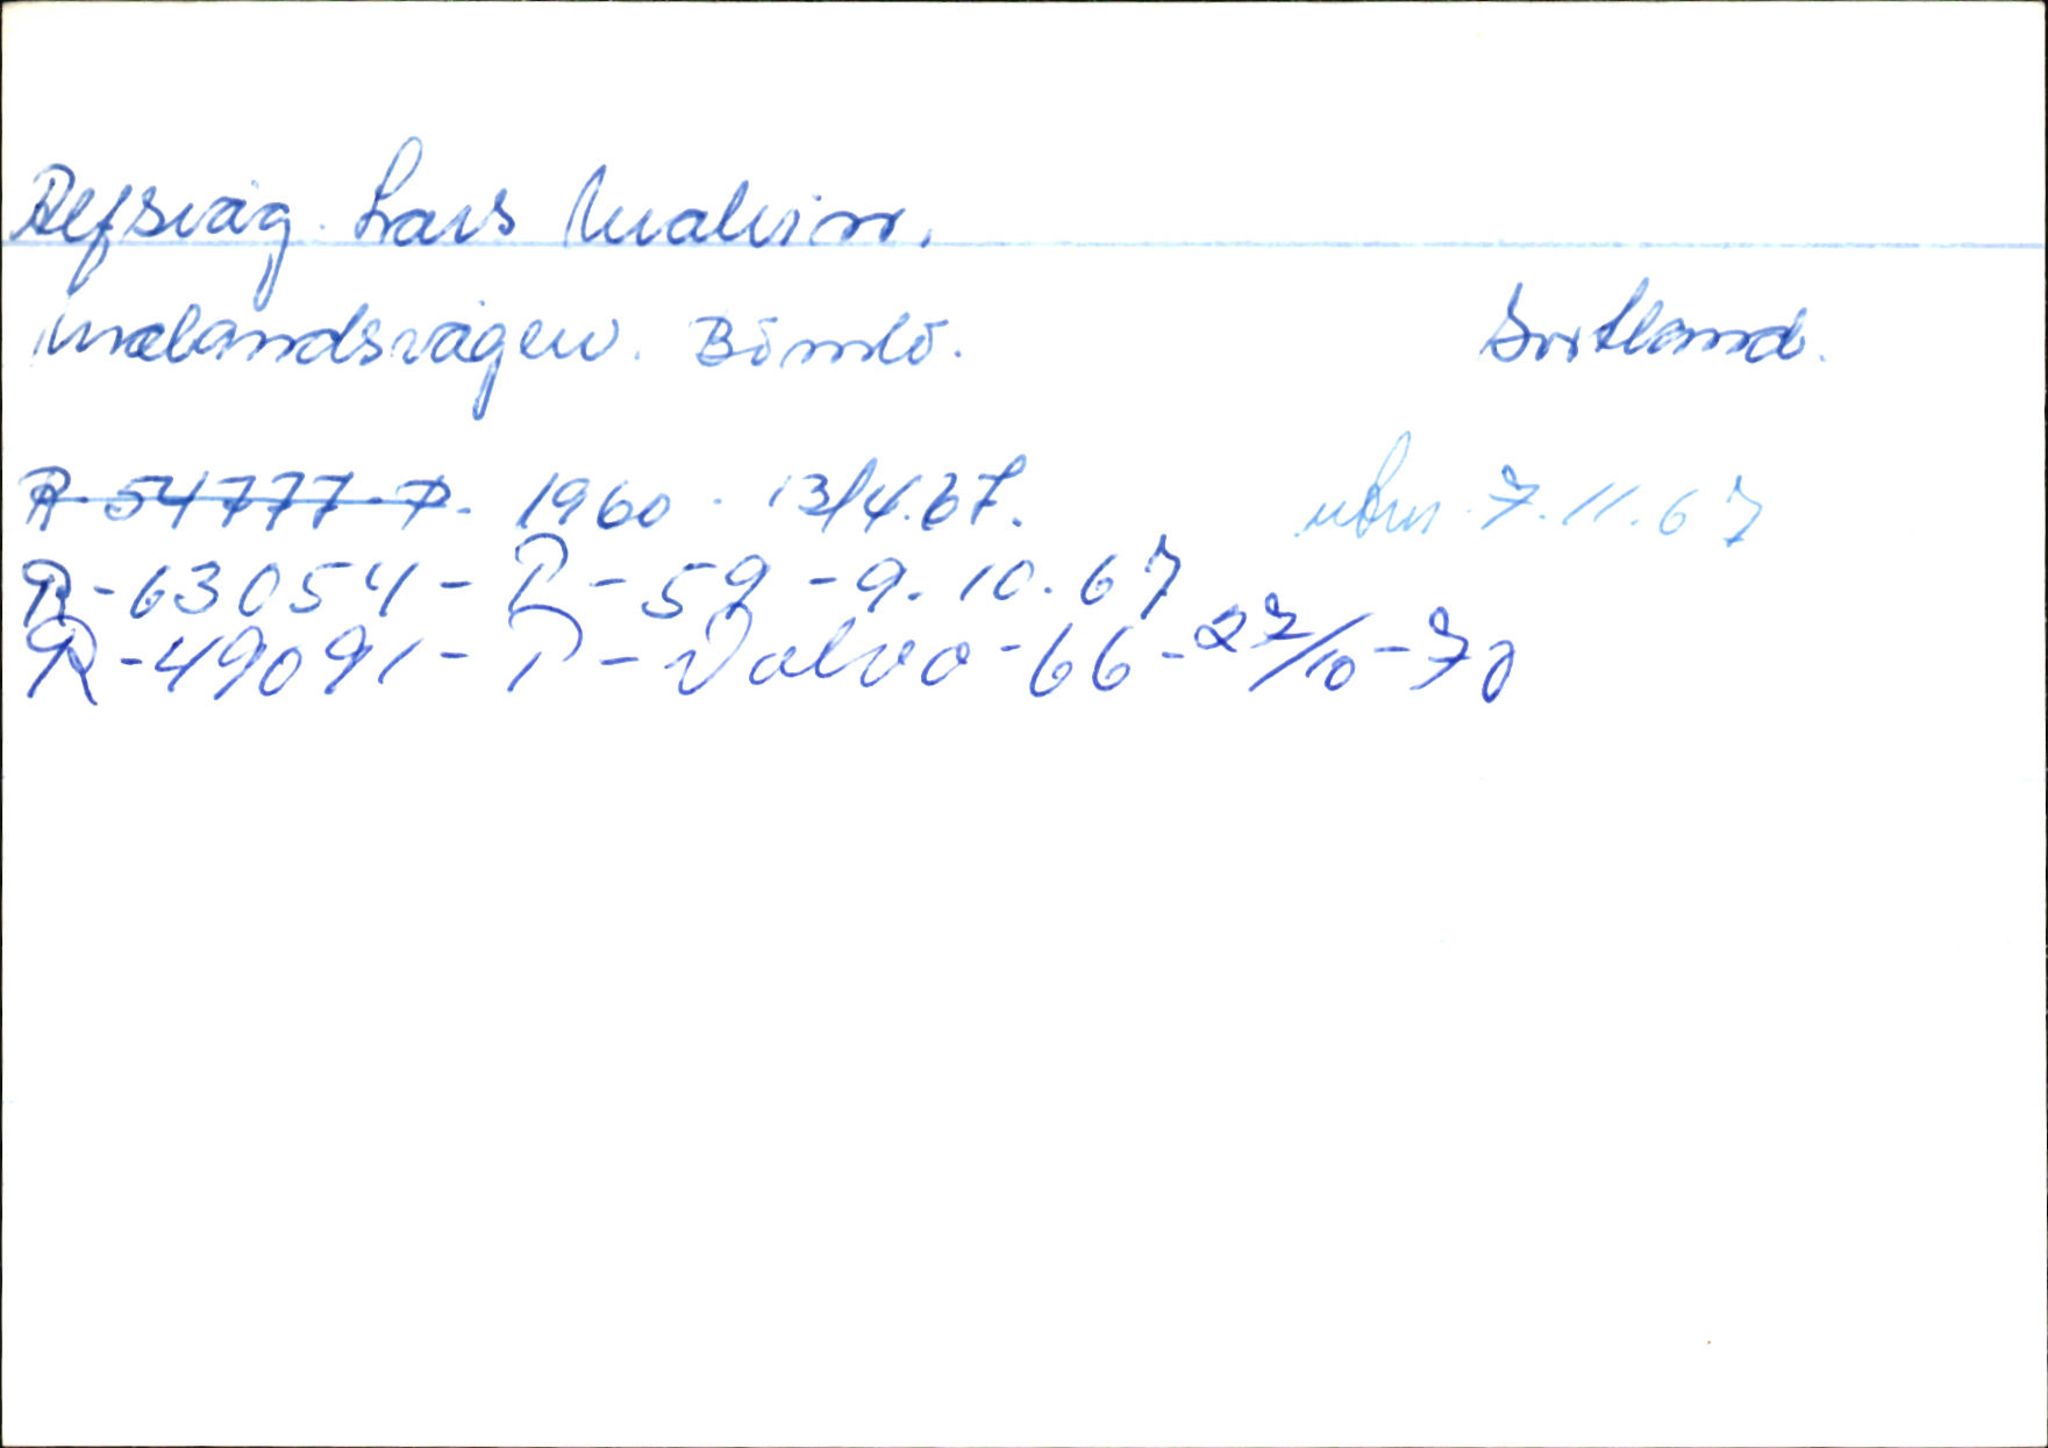 Refsvåg. Lars Malvin.
Mælandsvågen. Bömlö. Sortland.
R-54777-P. 1960. 13/4.67. 7.11.67
R-63054-P-59-9.10.67
R-49091-P-Volvo-66-27/10-70